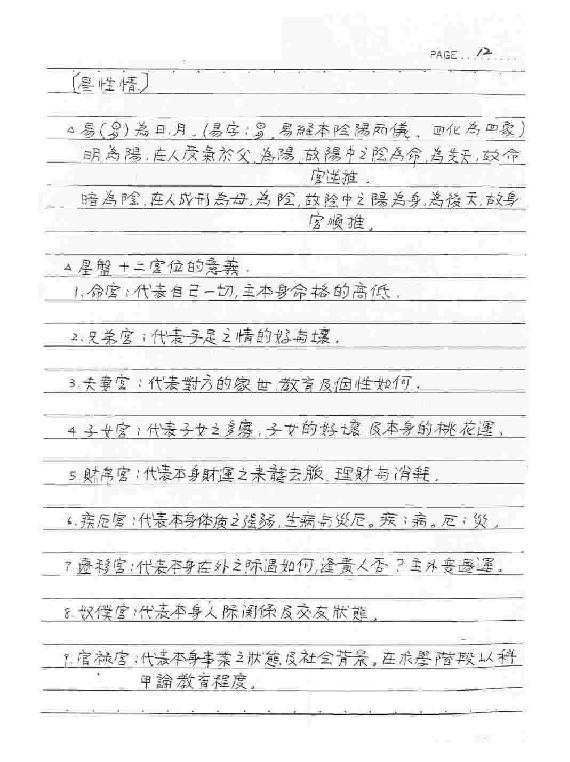 PAGE 12
[星性情]
△易(昜)為日.月.(易字:昜.易經本陰陽兩儀、四化為四象)
明為陽.在人受氣於父.為陽.故陽中之陰為命.為先天.故命
宮逆推.
暗為陰.在人成形為母.為陰.故陰中之陽為身.為後天.故身
宮順推.
△星盤十二宮位的意義.
1.命宮:代表自己一切,主本身命格的高低.
2.兄弟宮:代表手足之情的好与壞.
3.夫妻宮:代表對方的家世.教育及個性如何.
4.子女宮:代表子女之多寡.子女的好壞及本身的桃花運.
5.財帛宮:代表本身財運之来龍去脈.理財与消耗.
6.疾厄宮:代表本身体质之强弱.生病与災厄。疾:病。厄:災.
7.遷移宮:代表本身在外之際遇如何,逢貴人否?主外要遷運.
8.奴僕宮:代表本身人际関係及交友狀態.
9.官祿宮:代表本身事業之狀態及社会背景.在求學階段以科
甲論教育程度.